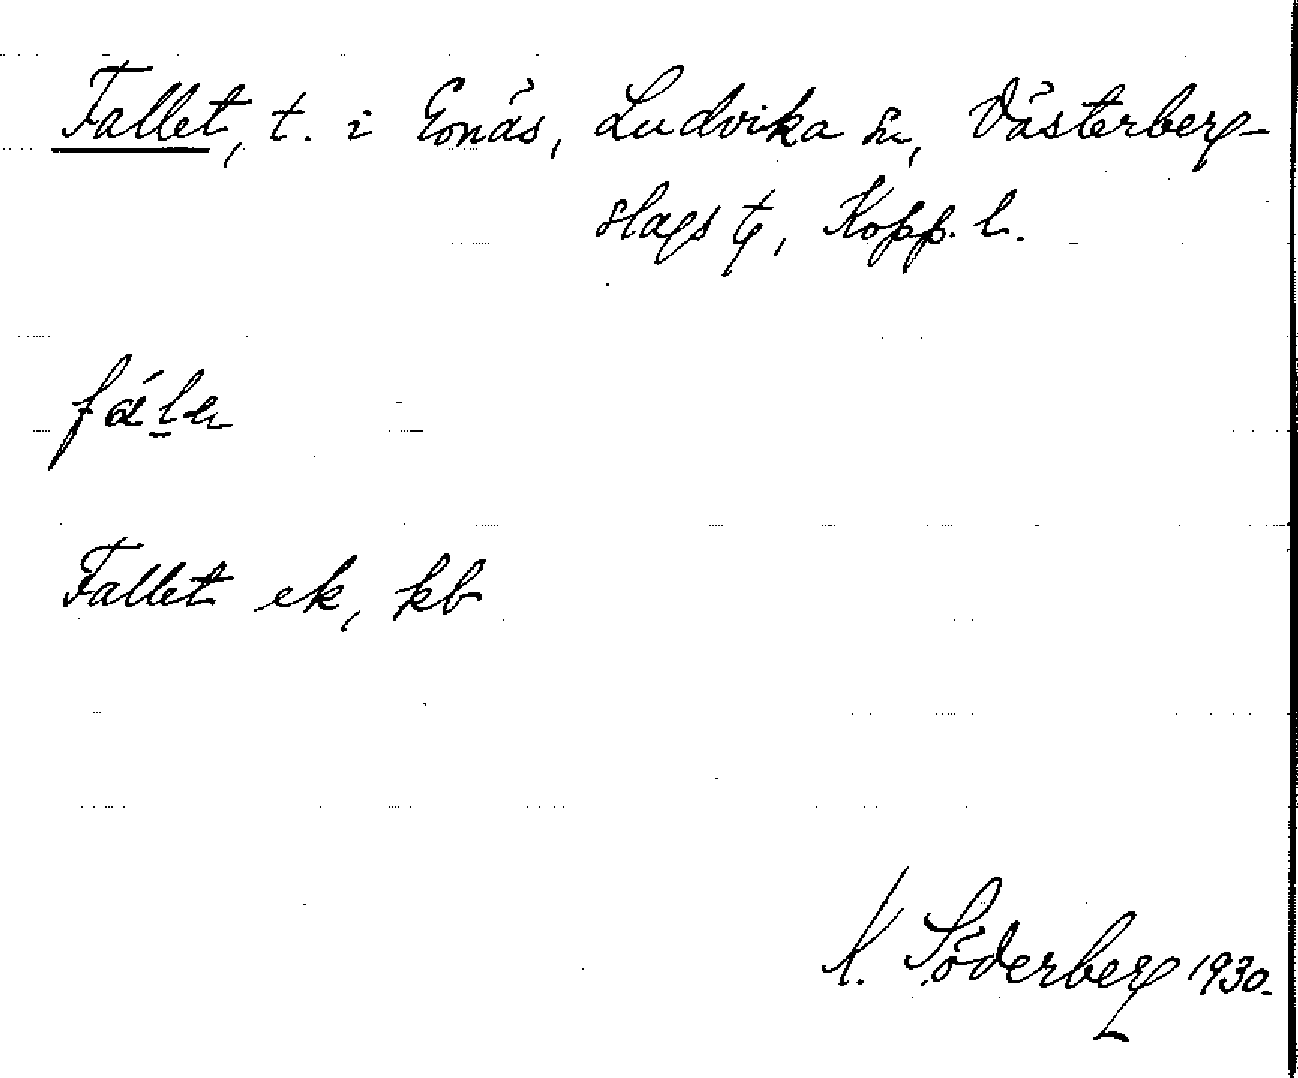 Fallet, t. i Gonäs, Ludvika sn, Västerberg-
slags tg, Kopp. l.
fáḻe
Fallet ek, kb
K. Söderberg 1930.